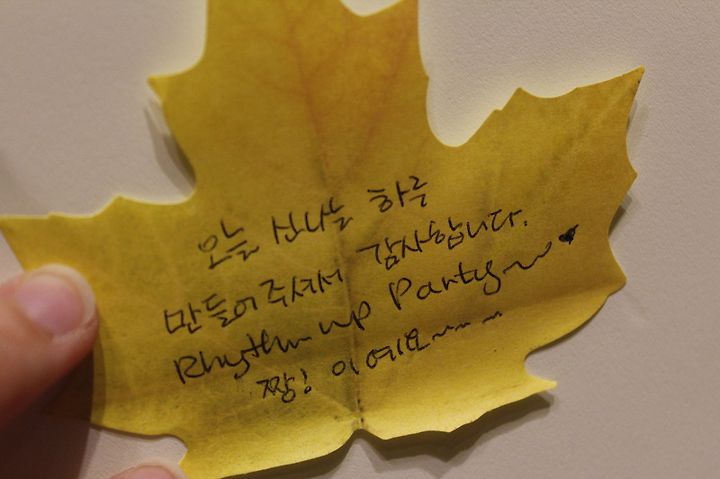 오늘 신나는 하루
만들어주셔서 감사합니다.
Rhythm up Party~ ♥
짱! 이예요~~~